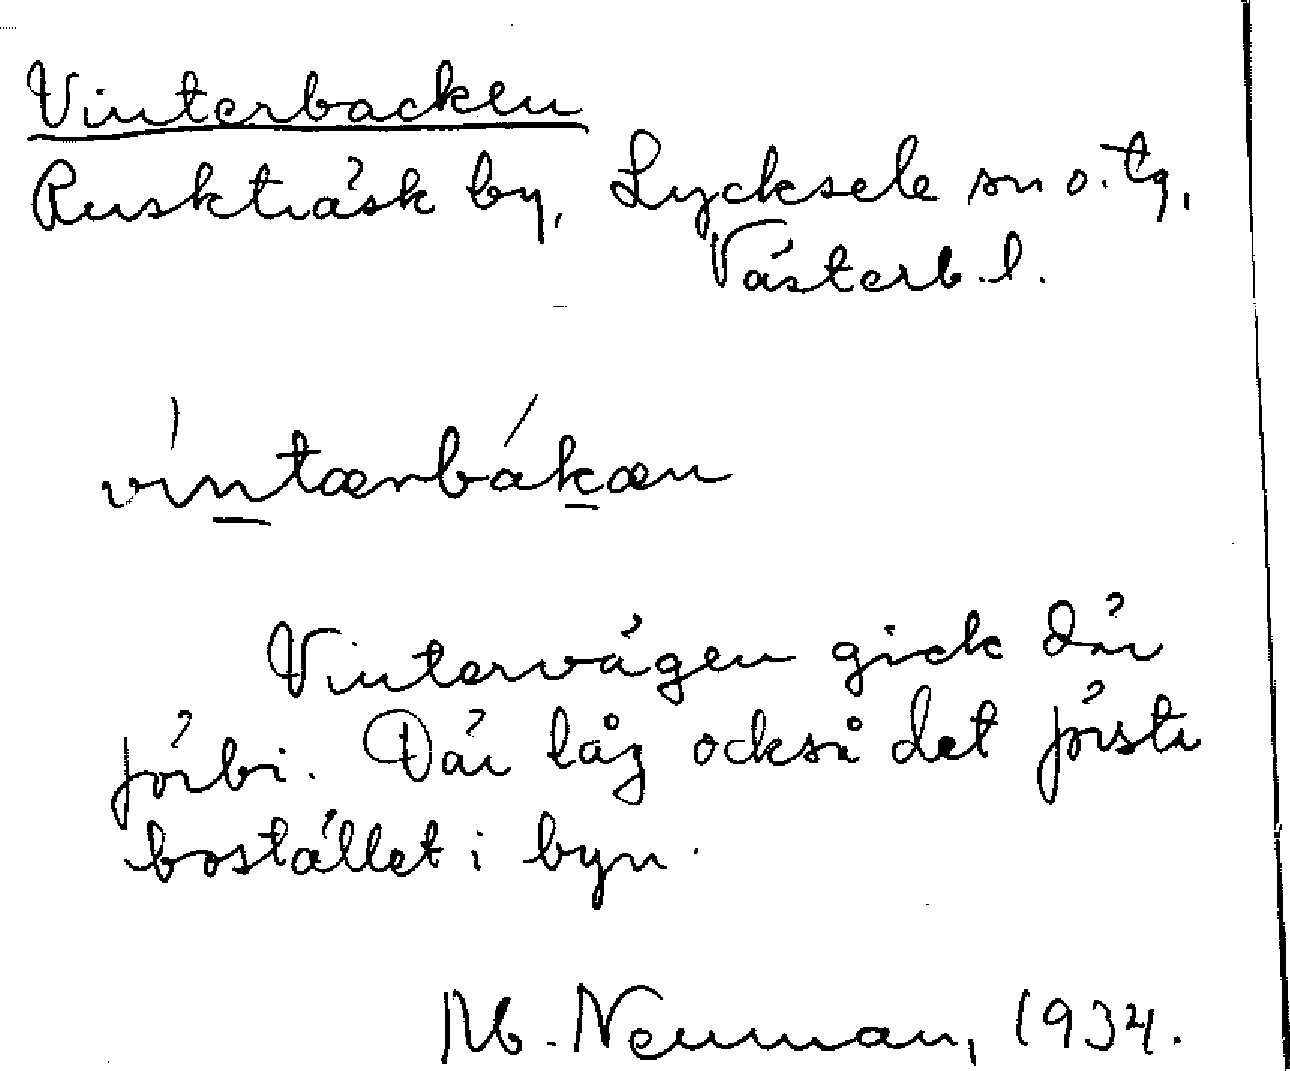 Vinterbacken
Ruskträsk by, Lycksele sn o. tg,
Västerb. l.
víntærbákæn
Vintervägen gick där
förbi. Där låg också det första
bostället i byn.
Neuman, 1934.